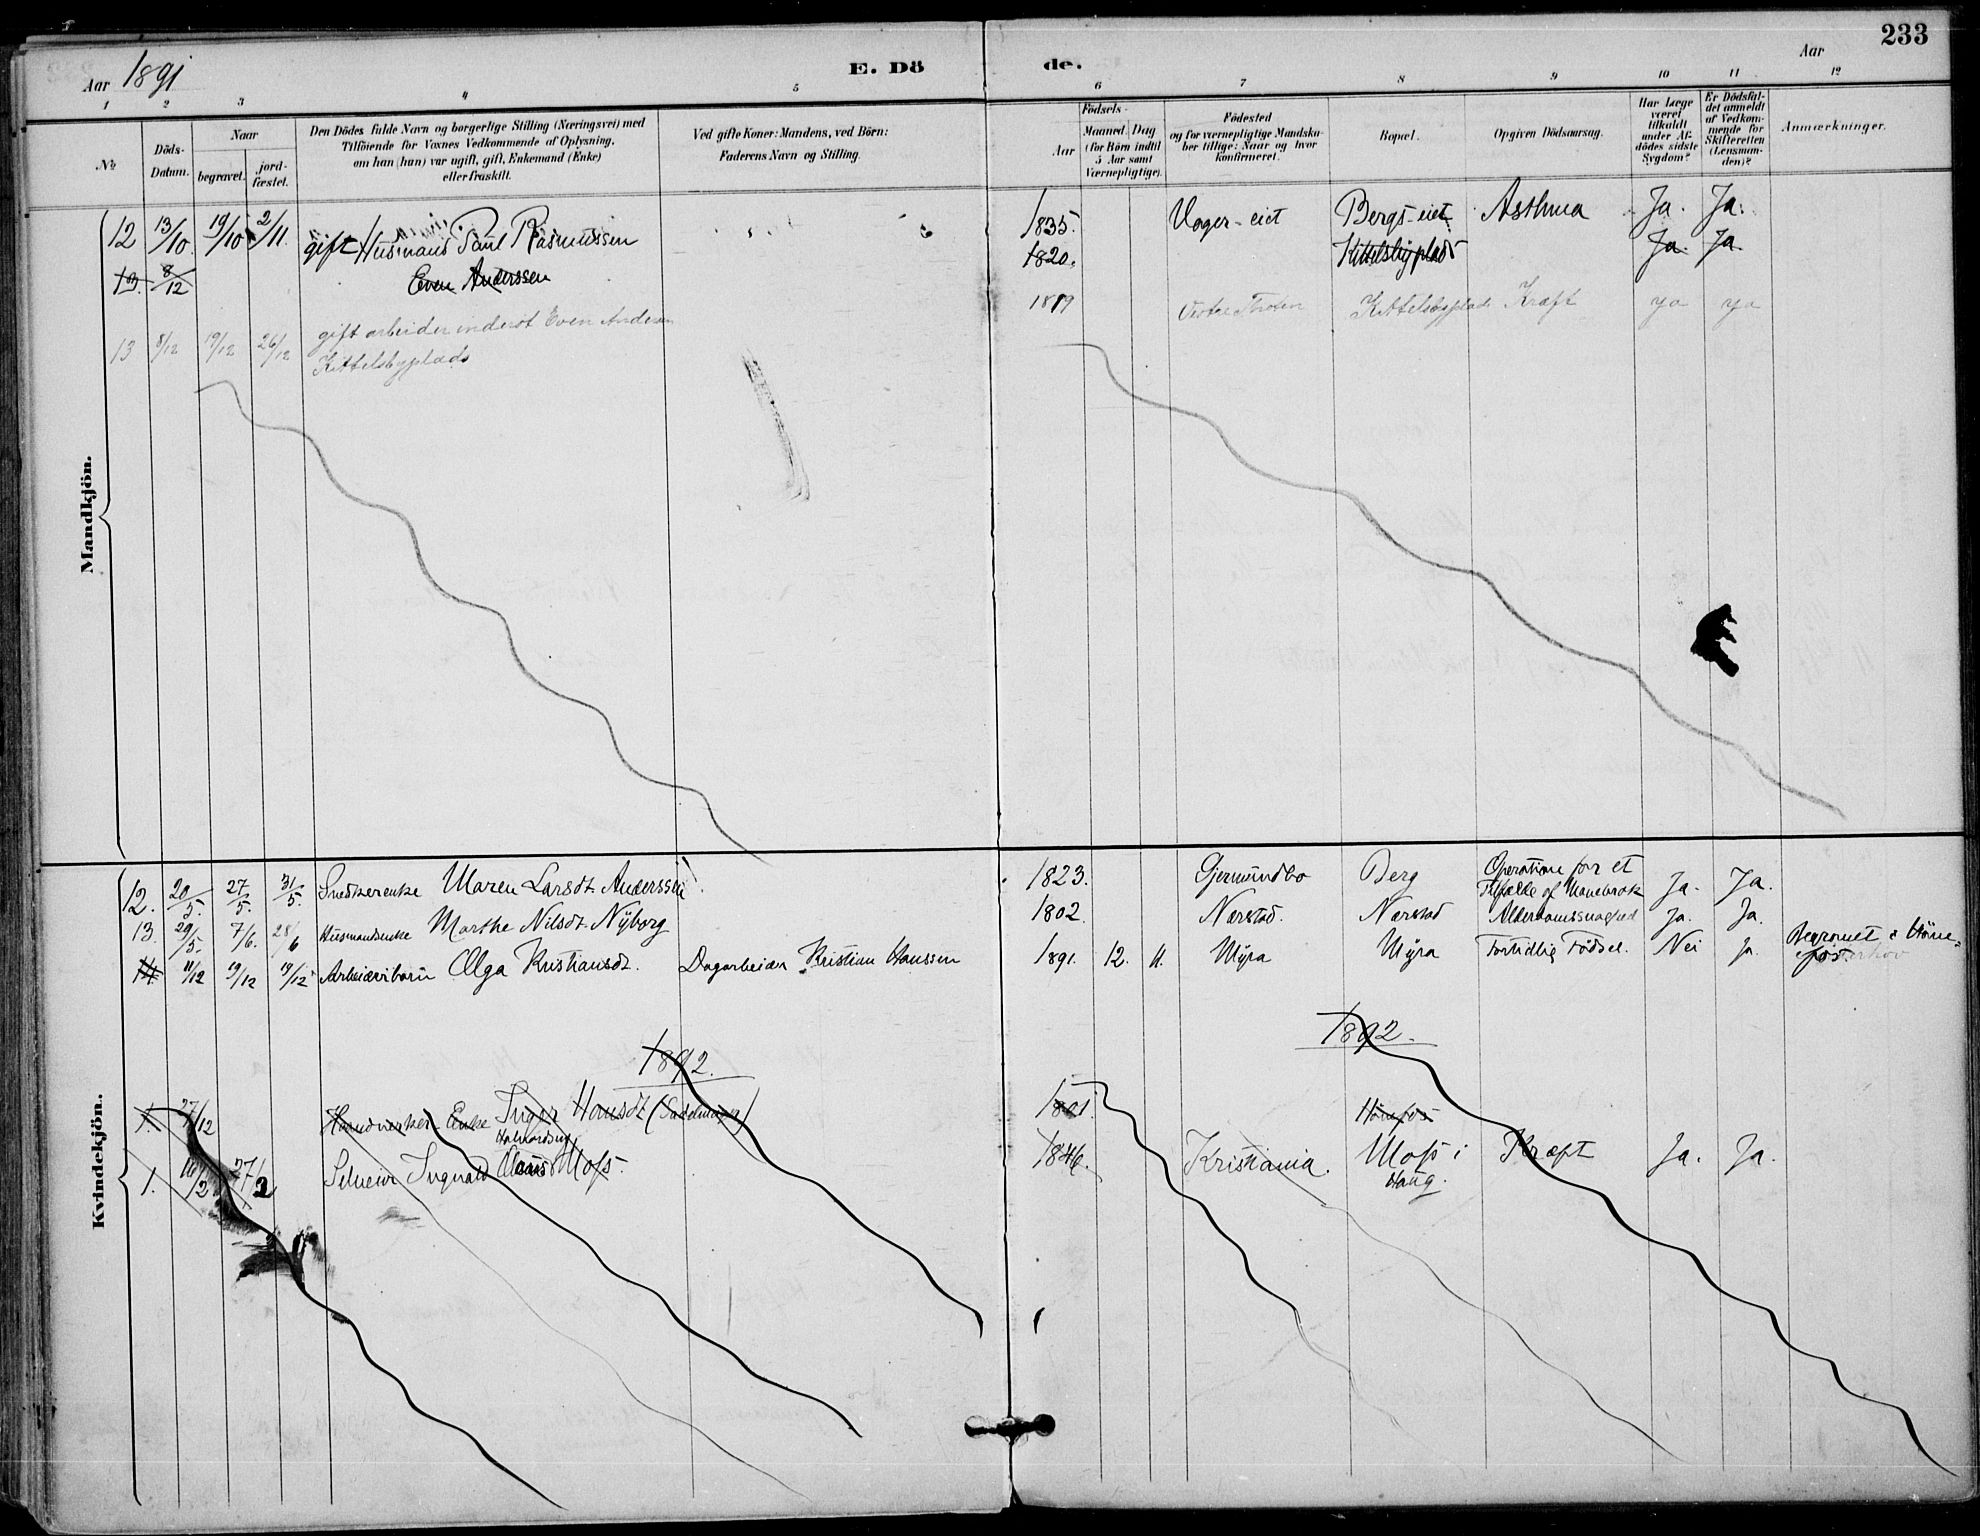 233
Aar 1891
E. Döde.
Aar
1 2 3 4 5 6 7 8 9 10 11 12
No
Döds-Datum.
Naar
begravet.
jord-fæstet.
Den Dödes fulde Navn og borgerlige Stilling (Næringsvei) med
Tilföiende for Voxnes Vedkommende af Oplysning,
om han (hun) var ugift, gift, Enkemand (Enke)
eller fraskilt.
Ved gifte Koner: Mandens, ved Börn:
Faderens Navn og Stilling.
Födsels-
Aar
Maaned. Dag
(for Börn indtil
5 Aar samt
Værnepligtige).
Födested
og for værnepligtige Mandskaber tillige: Naar og hvor
konfirmeret.
Bopæl.
Opgiven Dödsaarsag.
Har Læge
været
tilkaldt
under Afdödes sidste
Sygdom?
Er Dödsfaldet anmeldt
af Vedkommende for
Skifteretten
(Lensmanden)?
Anmærkninger.
Mandkjön.
12 13/10 19/10 2/11. gift Husmand Paul Rasmussen 1835. Vager-eiet Bergs-eiet Asthma Ja. Ja.
13. 8/12 Even Anderssen 1820. Kittelsbyplads Ja. Ja
13 8/12 19/12 26/12 gift arbeider inderst Even Andersen 1819 Vestre Thoten Kittelsbyplads Kræft ja ja
Kittelsbyplads
Kvindekjön.
12. 20/5. 27/5. 31/5. Snedkerenke Maren Larsdt. Anderssen 1823. Gjermundbo Berg Operation for et Tilfælde af Ja. Ja.
13. 29/5. 7/6. 28/6 Husmandsenke Marthe Nilsdt. Nyborg 1802. Nærstad. Nærstad Alderdomssvaghed Ja. Ja.
14. 11/12 19/12 19/12 Arbeiderbarn Olga Kristiansdt. Dagarbeider Kristian Hanssen 1891. 12. 11. Myra Myra Fortidlig Födsel. Nei ja. Begravet i
1892. 1892.
1. 27/12 Handverker-Enke Inger Hansdt 1801. Hönefos
1. 27/2 Ingvald Moss. 1846. Kristiania. Moss i Haug. Kræft Ja. Ja.